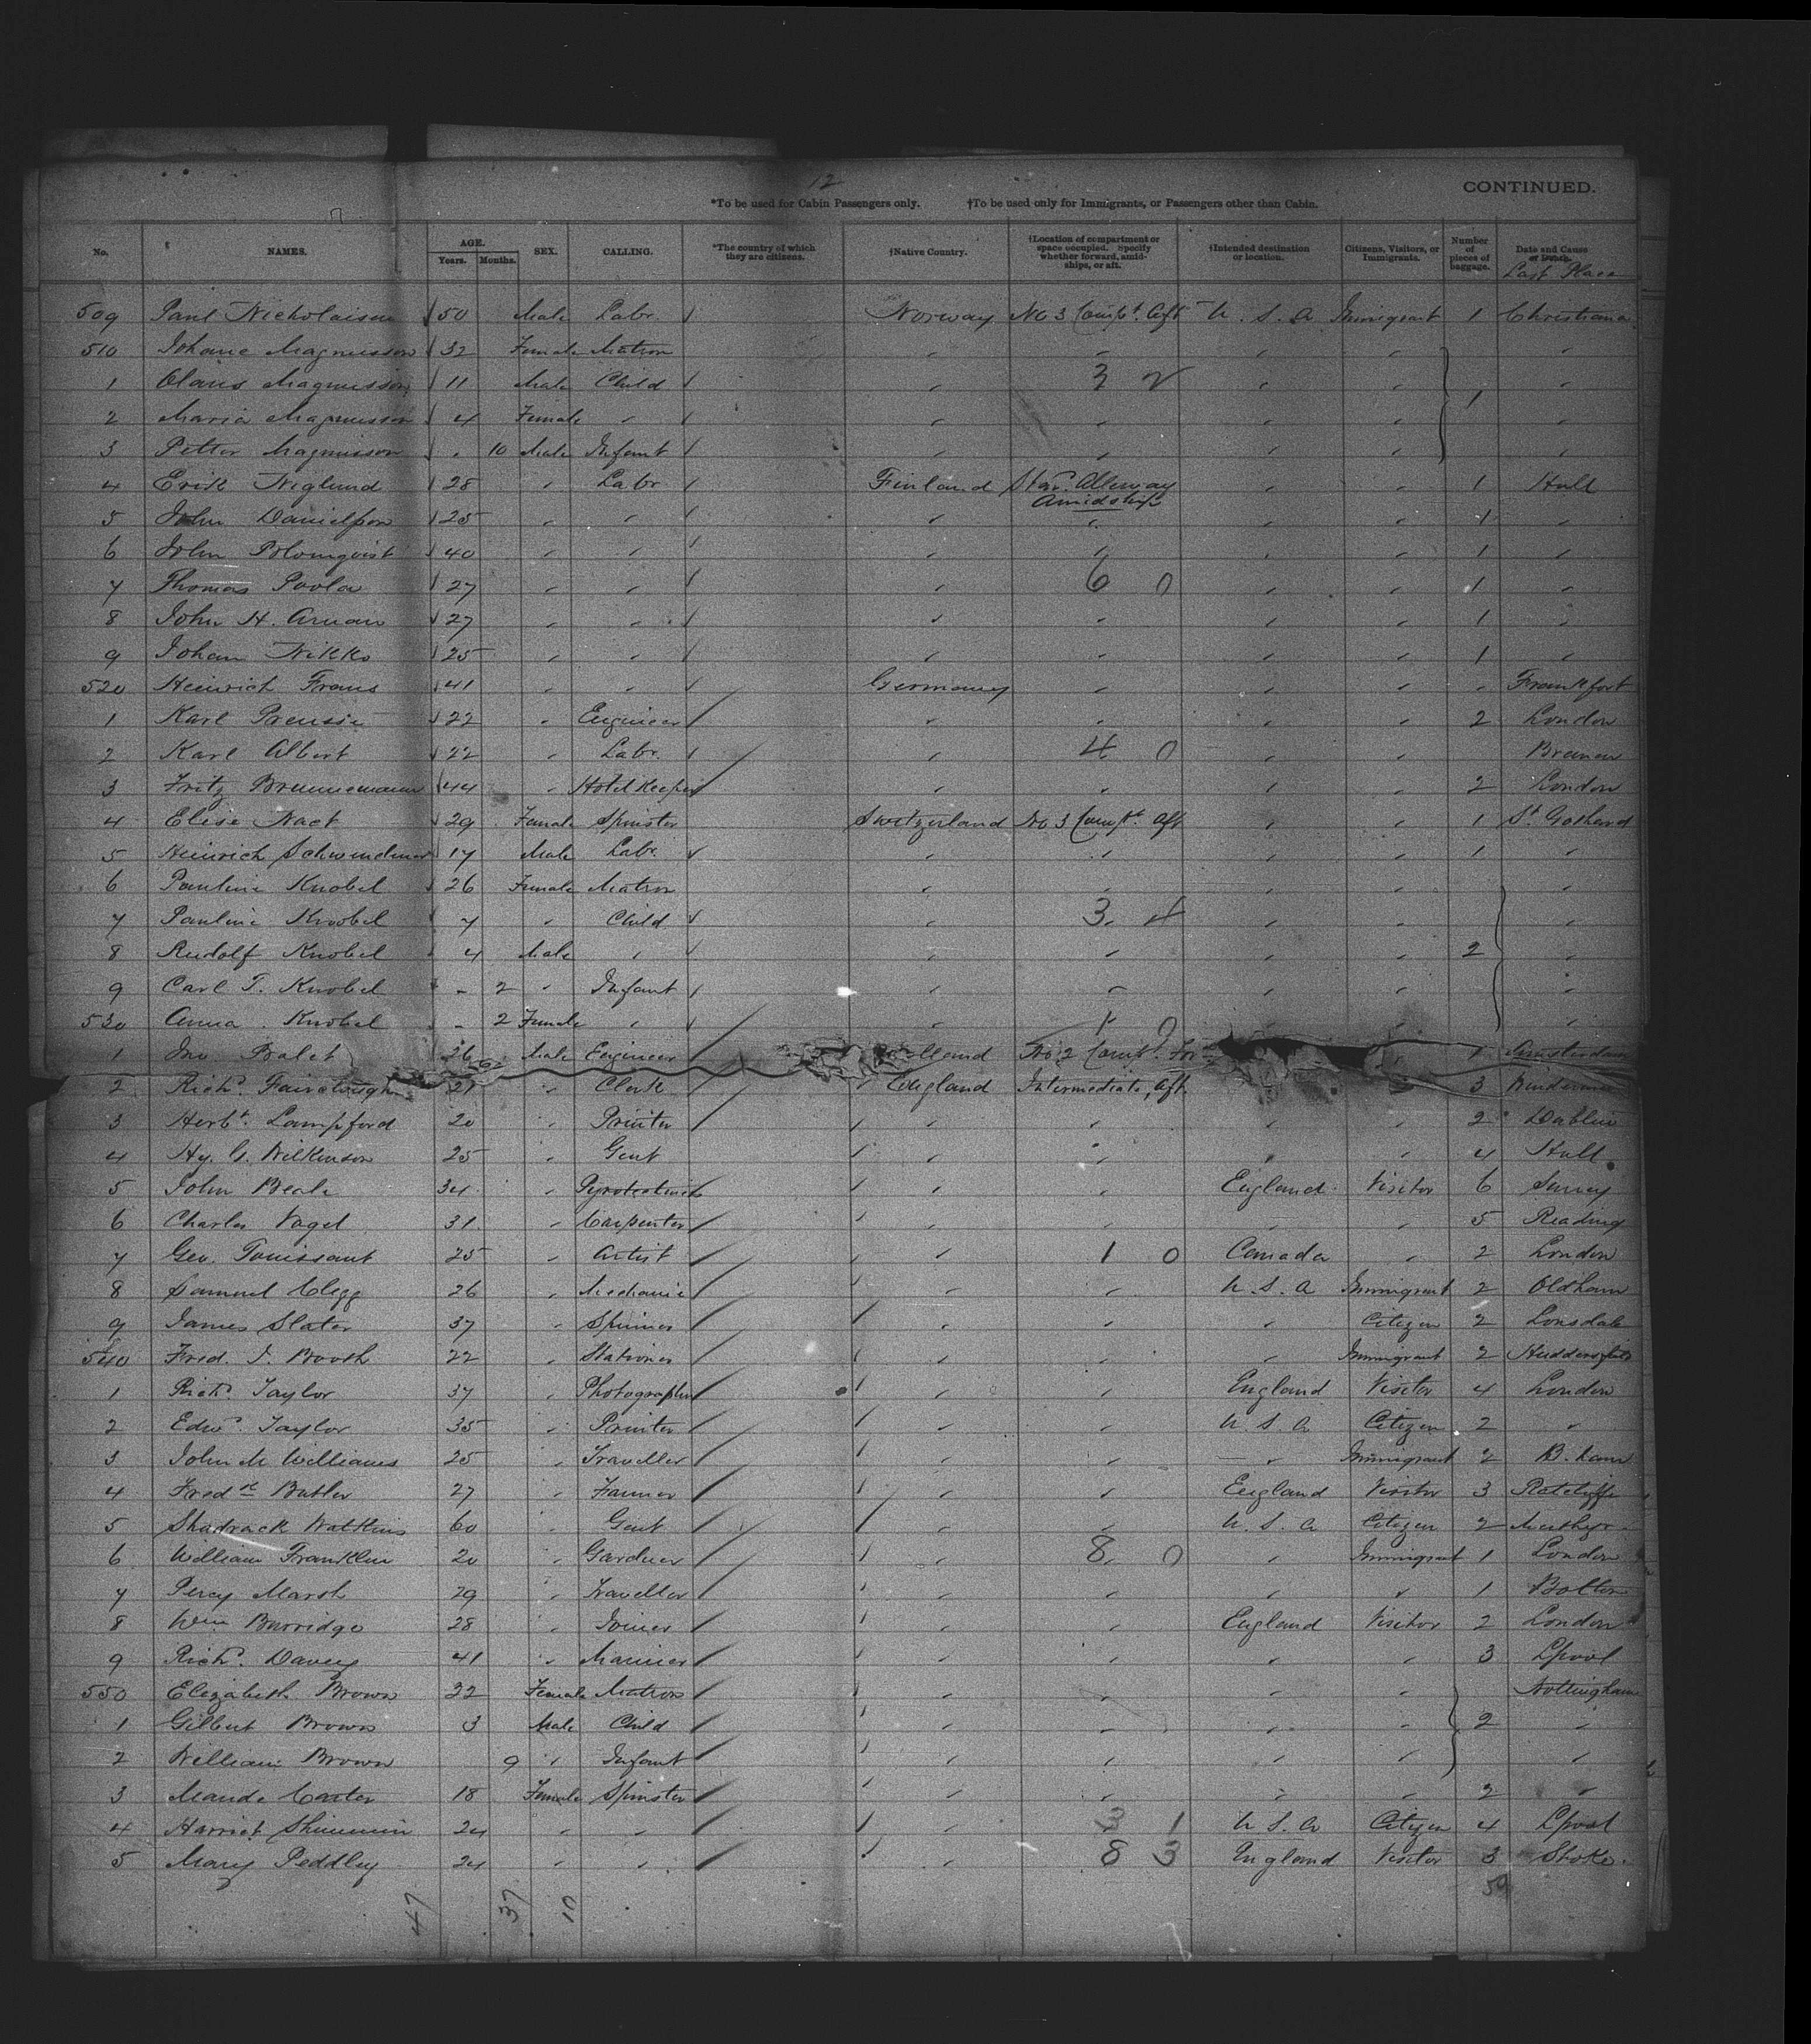 12
CONTINUED.
*To be used for Cabin Passengers only. †To be used only for Immigrants, or Passengers other than Cabin.
No. NAMES. AGE. Years. Months. SEX. CALLING. *The country of which they are citizens. †Native Country. †Location of compartment or space occupied. Specify whether forward, amidships, or aft. †Intended destination or location. Citizens, Visitors, or Immigrants. Number of pieces of baggage. Date and Cause of Death. Last Place
509 Paul 50 Male Labr. Norway No 3 Compt. Aft U. S. A Immigrant 1 Christiana
510 Johane Magnusson 32 Female Matron " " " " "
1 Olaus Magnusson 11 Male Child " 3 2 " " 1 "
2 Maria Magnusson 4 Female " " " " " "
3 Petter Magnusson " 10 Male Infant " " " " "
4 Erik Niglund 28 " Labr Finland Star. Alleway Amidship " " 1 Hull
5 John Danielson 25 " " " " " " 1 "
6 John 40 " " " " " " 1 "
7 Thomas Poola 27 " " " 6 0 " " 1 "
8 John H. 27 " " " " " " 1 "
9 Johan Nikko 25 " " " " " " 1 "
520 Heinrich Frans 41 " " Germany " " " " Frankfort
1 Karl 22 " Engineer " " " " 2 London
2 Karl Albert 22 " Labr. " 4 0 " " Bremen
3 Fritz Brunnemann 44 " Hotel Keeper " " " " 2 London
4 Elise Nact 29 Female Spinster Switzerland No 3 Compt. Aft " " 1 St. Gothard
5 Heinrich 17 Male Labr. " " " " 1 "
6 Pauline Knobel 26 Female Matron " " " " "
7 Pauline Knobel 7 " Child " 3 4 " " "
8 Rudolf Knobel 4 Male " " " " " 2 "
9 Carl T. Knobel - 2 " Infant " " " " "
530 Anna Knobel - 2 Female " " 1 0 " "
1 Jno. 36 Male Engineer lland No 2 Compt. For 1 Amsterdam
2 Richd. Fairclough 21 " Clerk England Intermediate, Aft. 3
3 Herbt. Lampford 20 " Printer " " " " 2 Dublin
4 Hy. G. Wilkinson 25 " Gent " " " " 4 Hull
5 John Beale 34 " " " England Visitor 6 Surrey
6 Charles Vogel 31 " Carpenter " " " " 5 Reading
7 Geo. Touissant 25 " Artist " 1 0 Canada " 2 London
8 Samuel Clegg 26 " Mechanic " " U. S. A Immigrant 2 Oldham
9 James Slater 37 " Spinner " " " Citizen 2 Lonsdale
540 Fred. J. Booth 22 " Stationer " " " Immigrant 2 Huddersfield
1 Richd. Taylor 37 " Photographer " " England Visitor 4 London
2 Edwd. Taylor 35 " Printer " " U. S. A Citizen 2 "
3 John M Williams 25 " Traveller " " " Immigrant 2 B.ham
4 Fredk Butler 27 " Farmer " " England Visitor 3 Ratcliffe
5 Shadrack Watkins 60 " Gent " " U. S. A Citizen 2 Merthyr
6 William Franklin 20 " Gardner " 8 0 " Immigrant 1 London
7 Percy Marsh 29 " Traveller " " " " 1 Bolton
8 Wm Burridge 28 " Joiner " " England Visitor 2 London
9 Richd. Davey 41 " Mariner " " " " 3 Lpool
550 Elizabeth Brown 32 Female Matron " " " " Nottingham
1 Gilbert Brown 3 Male Child " " " " 2 "
2 William Brown 9 " Infant " " " " "
3 Maude Carter 18 Female Spinster " " " " 2 "
4 Harriet Shimmin 24 " " " 3 1 U. S. A Citizen 4 Lpool
5 Mary Peddley 24 " " " 8 3 England Visitor 3 Stoke.
47 37 10 59